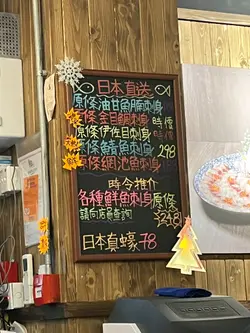 日本直送
原條油甘魚腩刺身
原條金目鯛刺身 時價
原條伊佐目刺身 時價
原條鯖魚刺身 298
原條網池魚刺身
時令推介
各種鮮魚刺身 原條
請向店員查詢 $348
日本真蠔 78